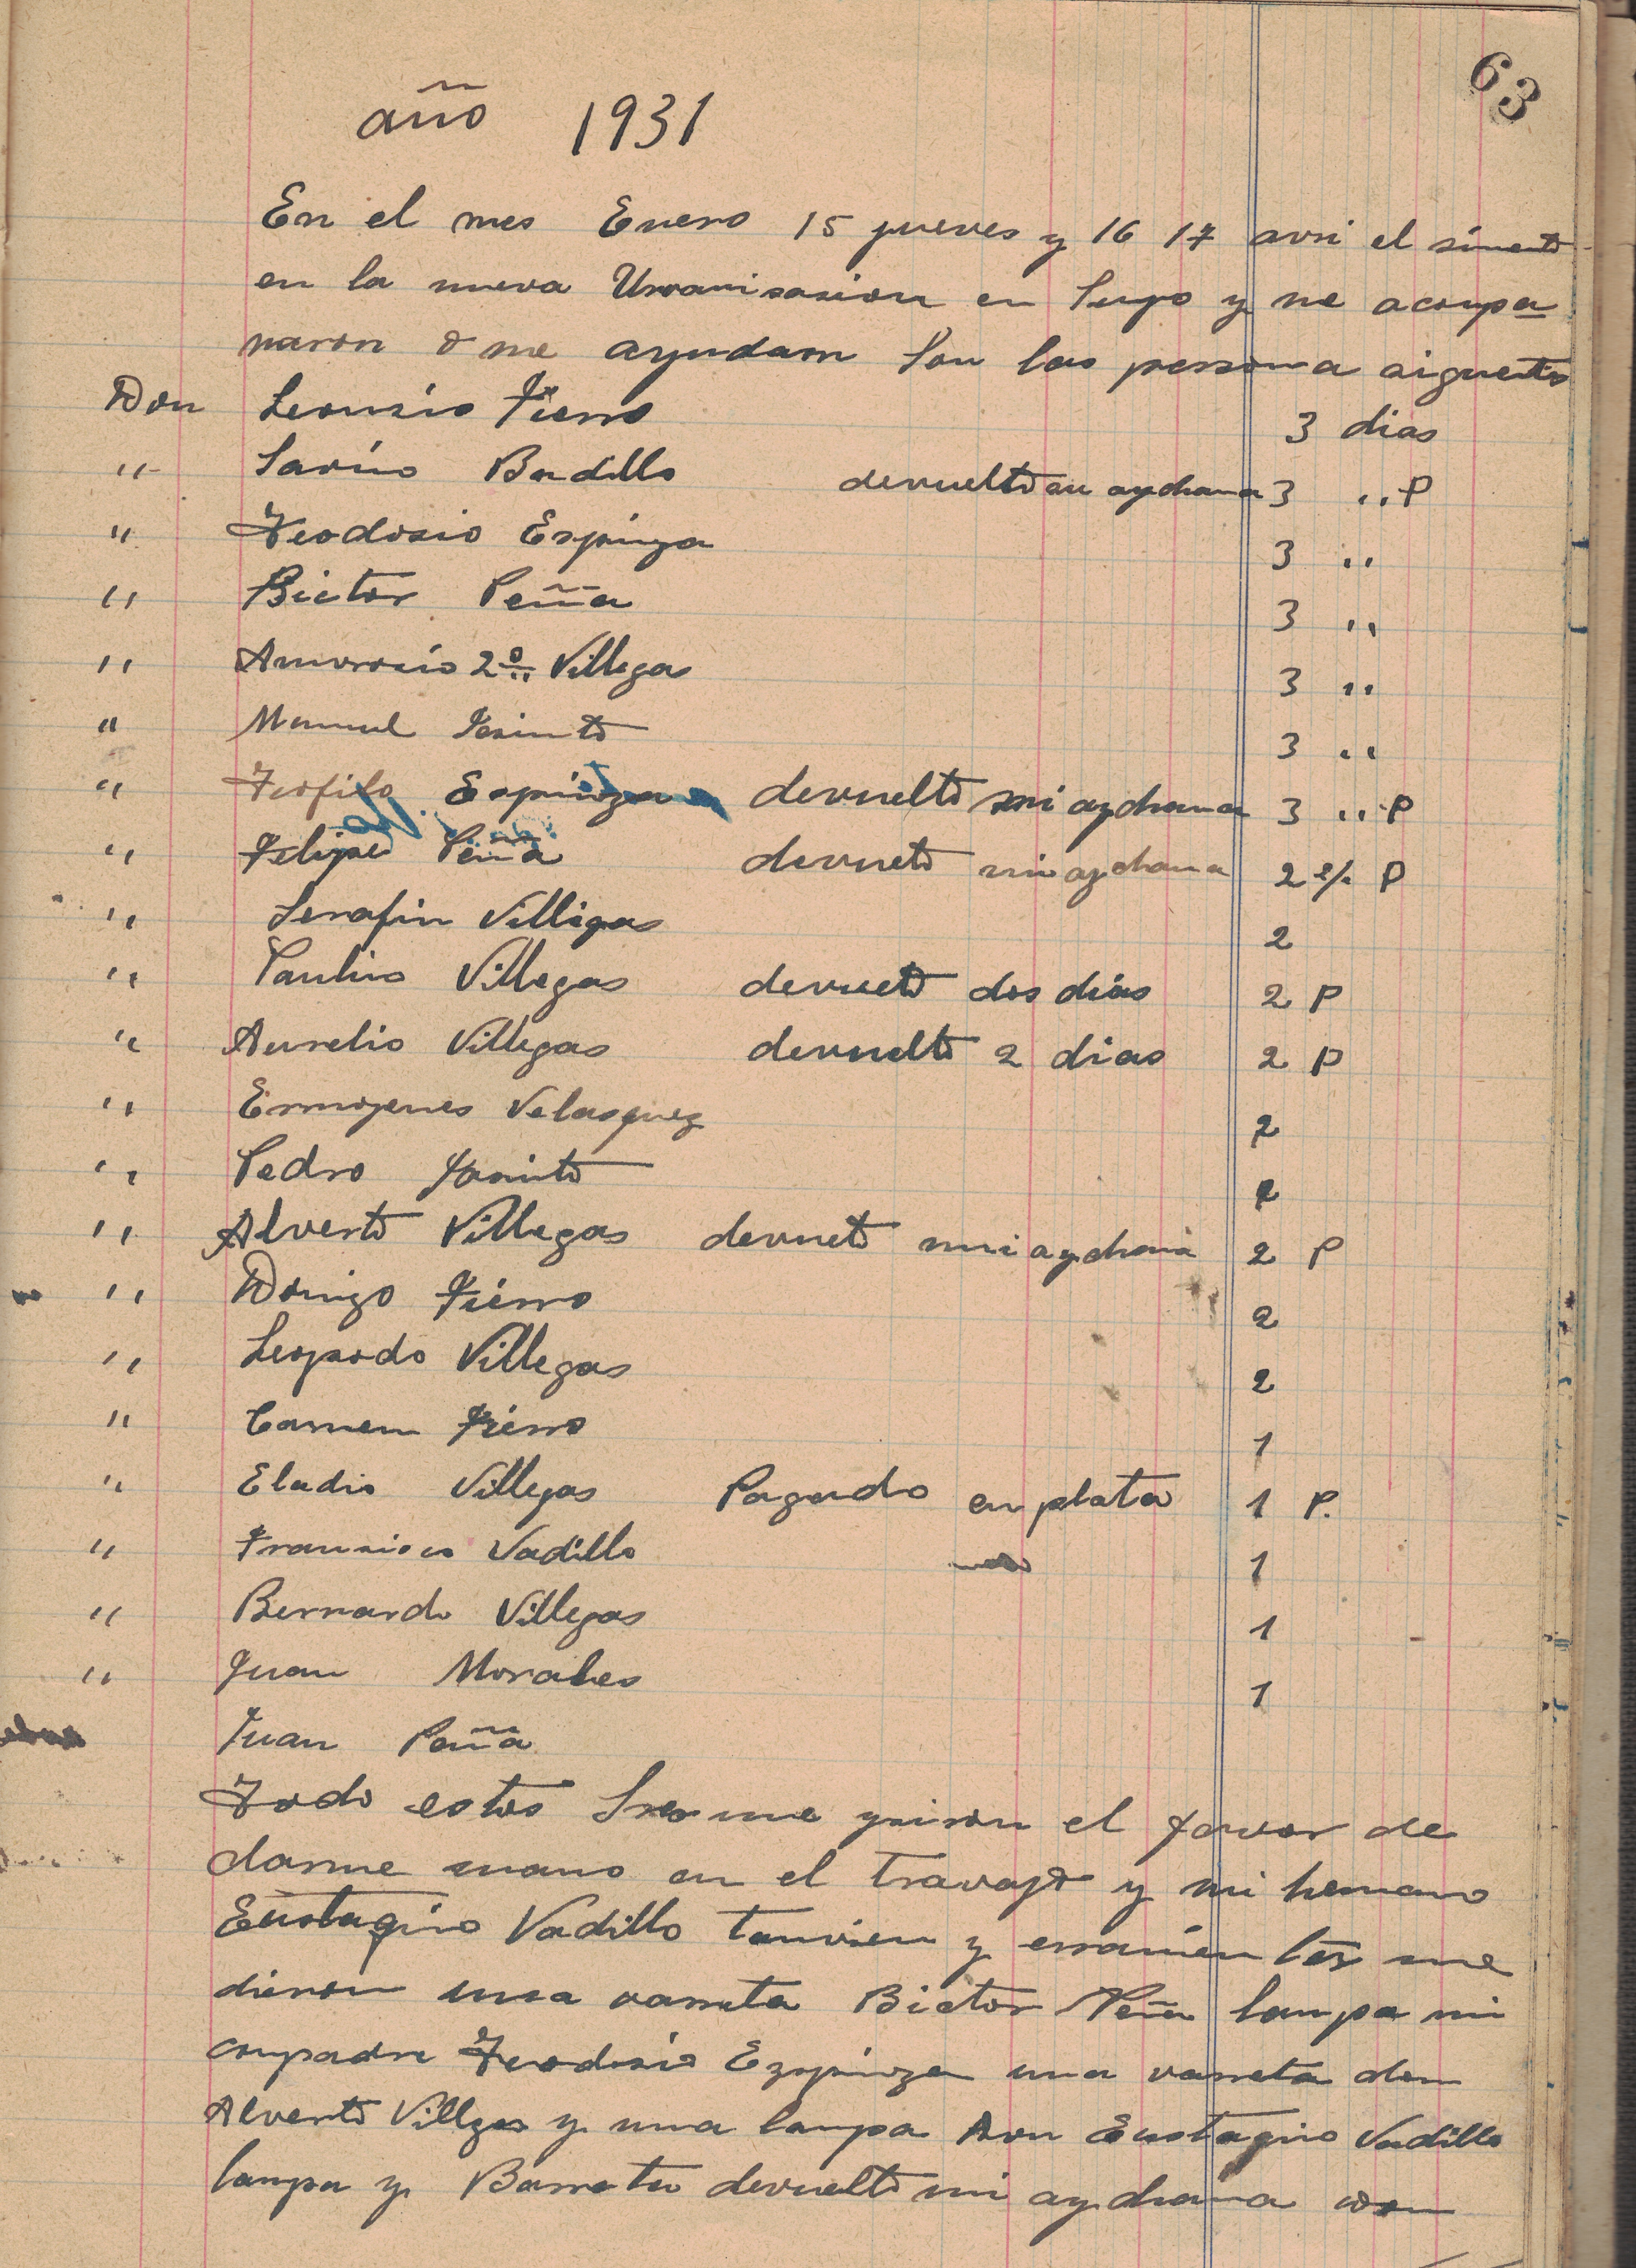 63
año 1931
En el mes Enero 15 jueves y 16 17 avri el simento
en la nueva Urvanisasion en Supo y me acompa
naron o me ayudaron Son las persona siguentes
Don Leonsio Fierro 3 dias
" Savino Badillo devuelto su aychana 3 " P
" Teodosio Espinoza 3 "
" Bictor Peña 3 "
" Amvrosio 2º Villegas 3 "
" Manuel Jasinto 3 "
" Teofilo Espinoza devuelto mi aychana 3 " P
" Felipe Peña devueto mi aychana 2 P
" Serafin Villigas 2
" Paulino Villegas devueto dos dias 2 P
" Aurelio Villegas devuelto 2 dias 2 P
" Ermojenes Velasquez 2
" Pedro Jasinto 2
" Alverto Villegas devueto mi aychana 2 P
" Domigo Fierro 2
" Leopardo Villegas 2
" Carmen Fierro 1
" Eladio Villegas Pagado en plata 1 P.
" Fransisco Vadillo 1
" Bernardo Villegas 1
" Juan Morales 1
Juan Peña
Todo estos Sres me el favor de
darme mano en el travajo y mi hemano
Eustaqino Vadillo tanvien y erramientos me
dieron una varreta Bictor Peña lampa mi
conpadre Teodosio Ezpinoza una varreta don
Alverto Villgas y una lampa Don Eustaqino Vadillo
lampa y Barreta devuelto mi aychana con